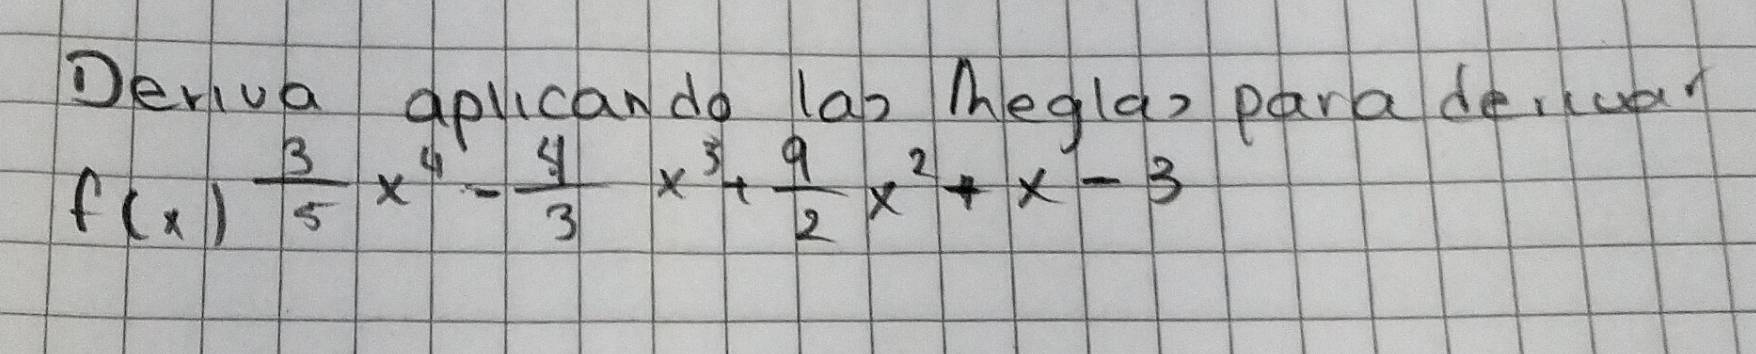 Deriva aplicando las Reglas para derivar
f(x) 3/5 x^4 - 4/3 x^3 + 9/2 x^2 + x - 3